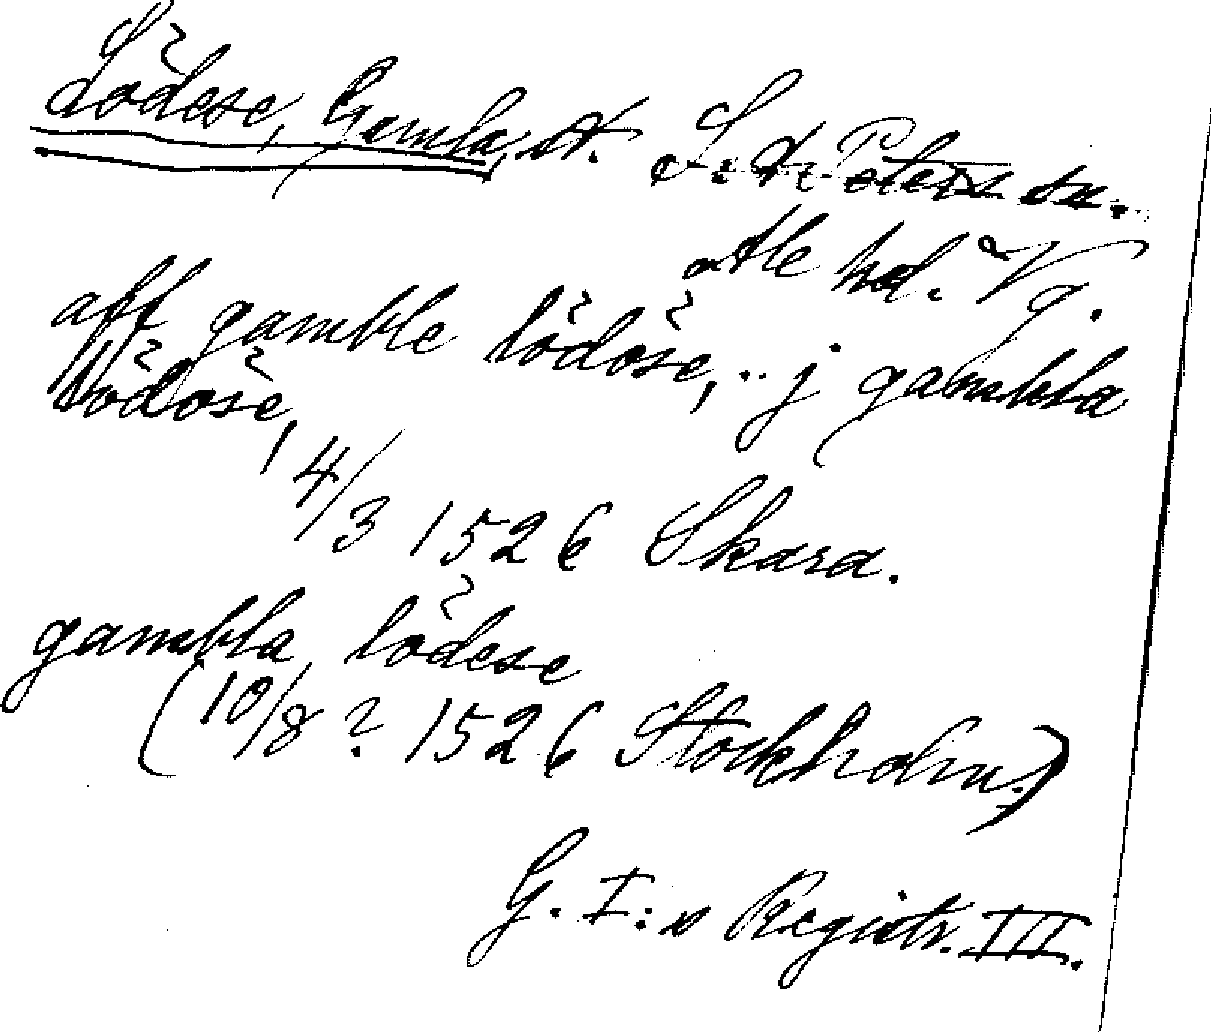 Lödese, Gamla, st. S:t Peters sn.
Ale hd. Vg.
aff gamble lödöse, .. j gambla
lödöse,
4/3 1526 Skara.
gambla lödese
(10/8? 1526 Stockholm.)
G. I:s Registr. III.